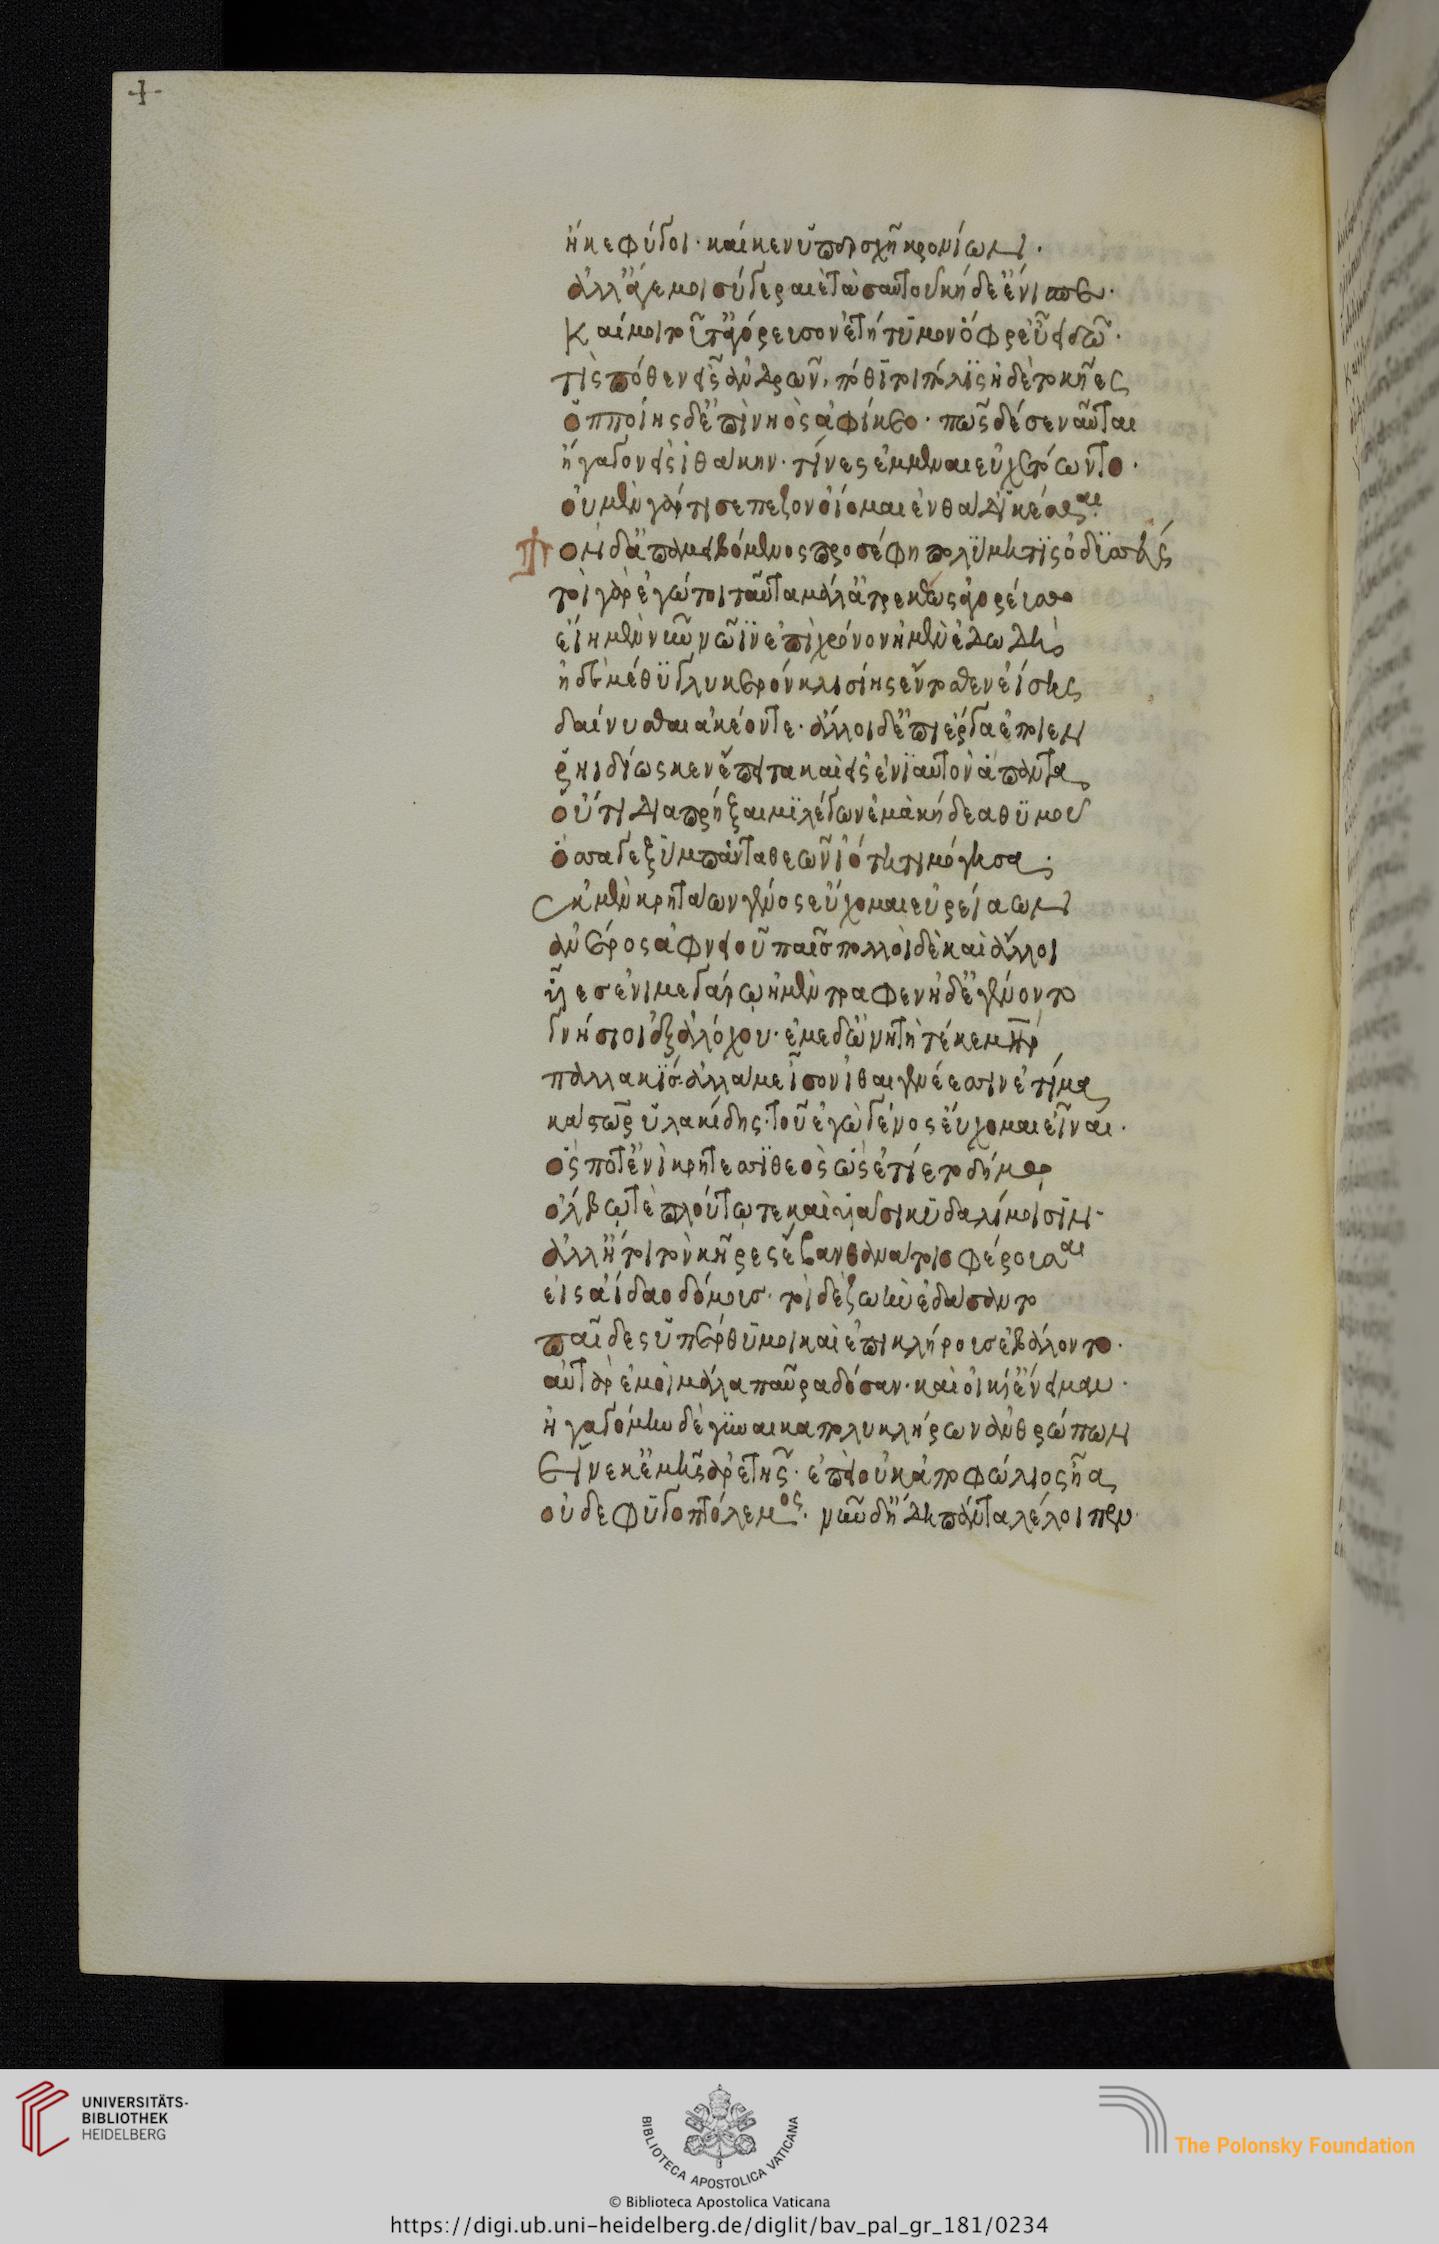 ἤ κε φύγοι· καί κεν ὑπερσχῆ κρονίων·
ἀλλ' ἄγε μοι σύ γεραιὲ τὰ σαυτοῦ κήδε' ἐνίσπε·
Καί μοι τοῦτ' ἀγόρευσον ἐτήτυμον ὄφρ' εὖ εἰδῶ·
τὶς πόθεν εἶς ἀνδρῶν, πόθι τοι πόλις ἠδὲ τοκῆες
ὁπποίης δ' ἐπὶ νηὸς ἀφίκεο· πῶς δέ σε ναῦται
ἤγαγον εἰς ἰθάκην· τίνες ἔμμεναι εὐχετόωντο·
οὐ μὲν γάρ τι σε πεζὸν ὀίομαι ἐνθάδ' ἱκέσθαι·
Τὸν δ' ἀπαμειβόμενος προσέφη πολύμητις ὀδυσσεύς
τοὶ γὰρ ἐγώ τοι ταῦτα μάλ' ἀτρεκέως ἀγορεύσω
εἴη μὲν νῦν νῶιν ἐπὶ χρόνον ἠμὲν ἐδωδὴ
ἠδὲ μέθυ γλυκερὸν κλισίης ἔντοσθεν ἐούσης
δαίνυσθαι ἀκέοντε· ἄλλοι δ' ἐπὶ ἔργα ἕποιεν
ῥηιδίως κεν ἔπειτα καὶ εἰς ἐνιαυτὸν ἅπαντα
οὔτι διαπρήξαιμι λέγων ἐμὰ κήδεα θυμοῦ
ὅσσα γε ξύμπαντα θεῶν ἰότητι μόγησα·
ἐκ μὲν κρητάων γένος εὔχομαι εὐρειάων
ἀνέρος ἀφνειοῦ παῖς πολλοὶ δὲ καὶ ἄλλοι
υἷες ἐνὶ μεγάρῳ ἠμὲν τράφεν ἠδ' ἐγένοντο
γνήσιοι ἐξ ἀλόχου· ἐμὲ δ' ὠνητὴ τέκε μήτηρ
παλλακίς· ἀλλά με ἶσον ἰθαιγενέεσσιν ἐτίμα
κάστωρ ὑλακίδης· τοῦ ἐγὼ γένος εὔχομαι εἶναι·
ὅς ποτ' ἐνὶ κρήτεσσι θεὸς ὣς ἐτίετο δήμῳ
ὄλβῳ τὲ πλούτῳ τε καὶ υἱάσι κυδαλίμοισιν·
ἀλλ' ἤτοι τὸν κῆρες ἔβαν θανάτοιο φέρουσαι
εἰς ἀίδαο δόμους· τοὶ δὲ ζωὴν ἐδάσαντο
παῖδες ὑπέρθυμοι καὶ ἐπὶ κλήρους ἐβάλοντο·
αὐτὰρ ἐμοὶ μάλα παῦρα δόσαν· καὶ οἰκί' ἔνειμαν·
ἠγαγόμην δὲ γυναῖκα πολυκλήρων ἀνθρώπων
εἵνεκ' ἐμῆς ἀρετῆς· ἐπεὶ οὐκ ἀποφώλιος ἦα
οὐδὲ φυγοπτόλεμος· νῦν δ' ἤδη πάντα λέλοιπεν·
UNIVERSITÄTS-
BIBLIOTHEK
HEIDELBERG
BIBLIOTECA APOSTOLICA VATICANA
The Polonsky Foundation
© Biblioteca Apostolica Vaticana
https://digi.ub.uni-heidelberg.de/diglit/bav_pal_gr_181/0234